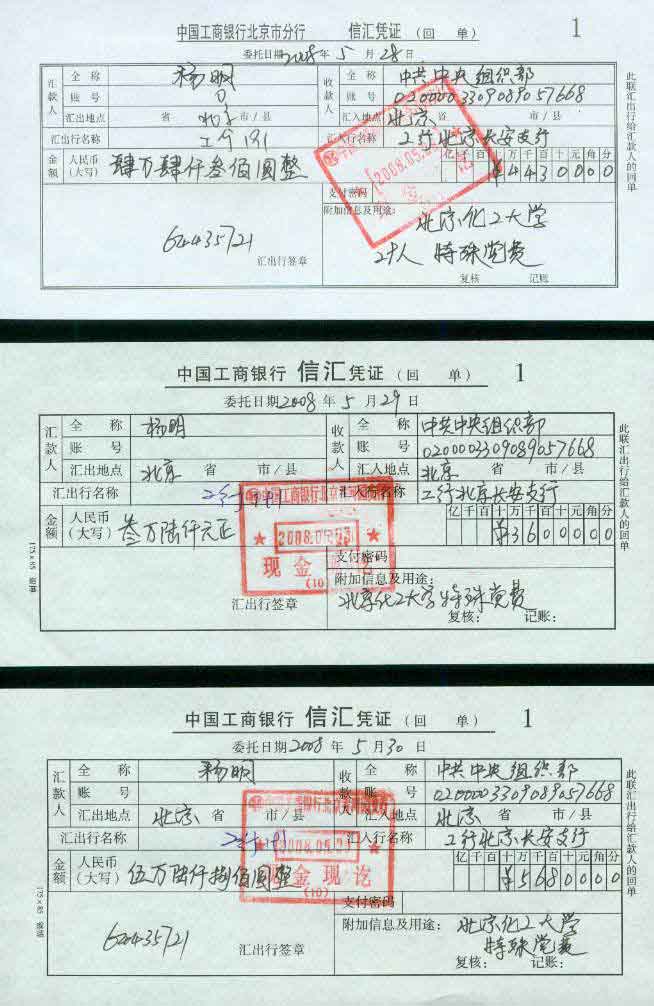 中国工商银行北京市分行 信汇凭证 (回 单) 1
委托日期2008年5月28日
汇款人 全 称 杨明 收款人 全 称 中共中央组织部
账 号 账 号 0200003309089057668
汇出地点 北京 省 市/县 汇入地点 北京 省 市/县
汇出行名称 汇入行名称 工行北京长安支行
金额 人民币(大写) 肆万肆仟叁佰圆整 亿千百十万千百十元角分 ¥4430000
支付密码
附加信息及用途: 北京化工大学
特殊党费
62435721
汇出行签章 复核 记账:
此联汇出行给汇款人的回单
中国工商银行 信汇凭证 (回 单) 1
委托日期2008年5月29日
汇款人 全 称 杨明 收款人 全 称 中共中央组织部
账 号 账 号 0200003309089057668
汇出地点 北京 省 市/县 汇入地点 北京 省 市/县
汇出行名称 汇入行名称 工行北京长安支行
金额 人民币(大写) 叁万陆仟元正 亿千百十万千百十元角分 ¥3600000
现金
(10)
支付密码
附加信息及用途:
北京化工大学特殊党费
汇出行签章 复核: 记账:
此联汇出行给汇款人的回单
中国工商银行 信汇凭证 (回 单) 1
委托日期2008年5月30日
汇款人 全 称 杨明 收款人 全 称 中共中央组织部
账 号 账 号 0200003309089057668
汇出地点 北京 省 市/县 汇入地点 北京 省 市/县
汇出行名称 汇入行名称 工行北京长安支行
金额 人民币(大写) 伍万陆仟捌佰圆整 亿千百十万千百十元角分 ¥5680000
金现讫
(10)
支付密码
附加信息及用途: 北京化工大学
特殊党费
62435721
汇出行签章 复核: 记账:
此联汇出行给汇款人的回单